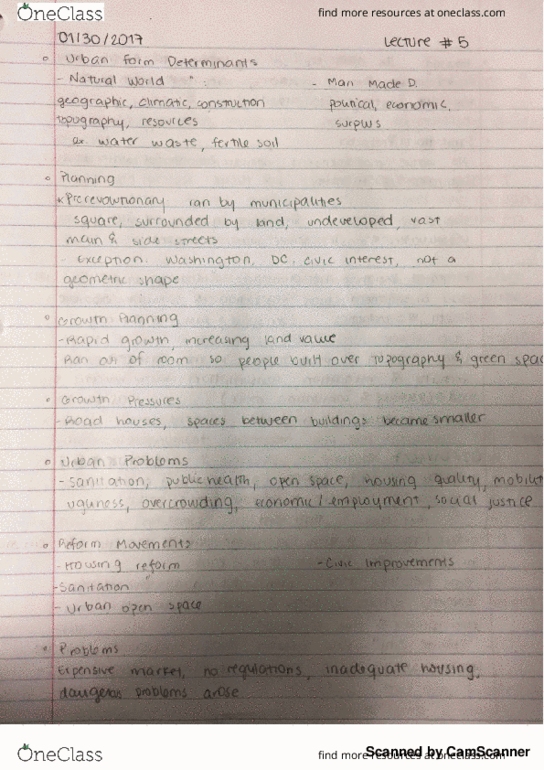 OneClass
find more resources at oneclass.com
01/30/2017 Lecture # 5
Urban Form Determinants
- Natural World - Man Made D.
geographic, climatic, construction political, economic,
topography, resources surplus
ex. water waste, fertile soil
Planning
*Prerevolutionary ran by municipalities
square, surrounded by land, undeveloped, vast
main & side streets
- exception: Washington, DC, civic interest, not a
geometric shape
Growth Planning
- Rapid growth, increasing land value
Ran out of room so people built over topography & green spac
Growth Pressures
- Road houses, spaces between buildings became smaller
Urban Problems
- sanitation, public health, open space, housing quality, mobilit
ugliness, overcrowding, economic/employment, social justice
Reform Movements
- Housing reform - Civic Improvements
- Sanitation
- Urban open space
Problems
Expensive market, no regulations, inadequate housing,
dangerous problems arose
OneClass
find more resources at oneclass.com
Scanned by CamScanner